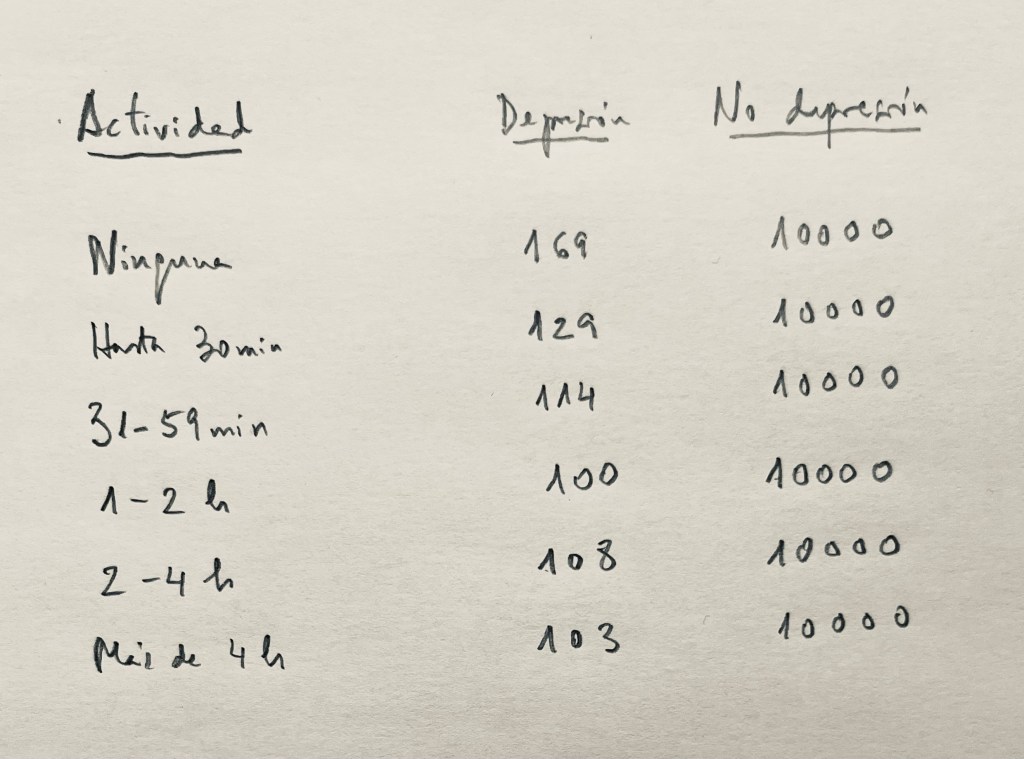 Actividad Depresión No depresión
Ninguna 169 10000
Hasta 30 min 129 10000
31-59 min 114 10000
1-2 h 100 10000
2-4 h 108 10000
Más de 4 h 103 10000